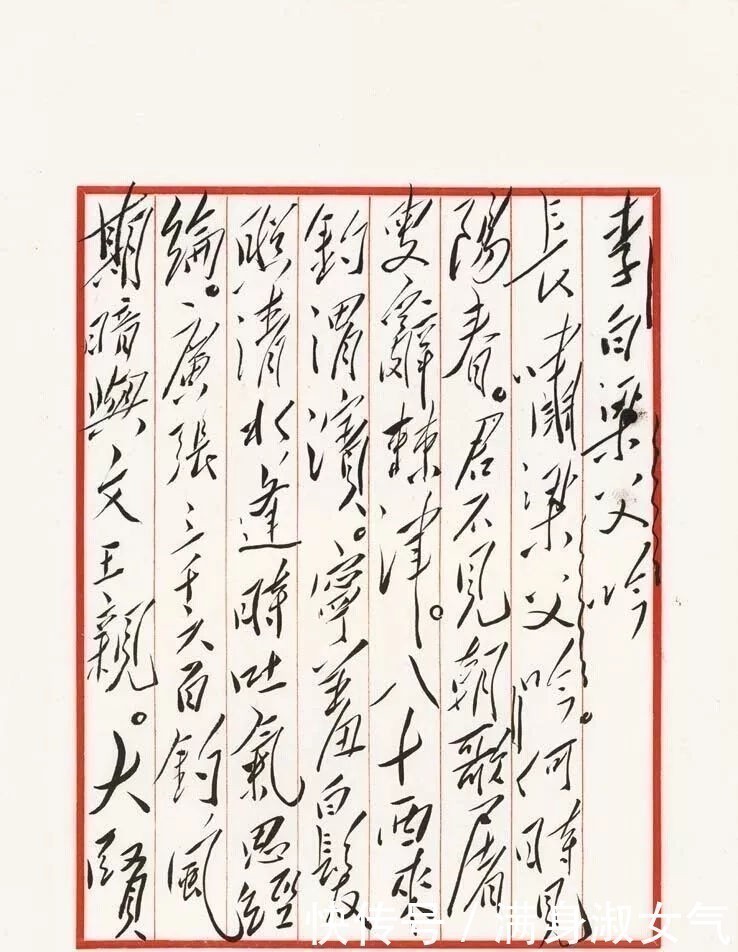 李白梁父吟
長嘯梁父吟。何時見
陽春。君不見朝歌屠
叟辭棘津。八十西來
釣渭濱。寧羞白髮
照清水逢時吐氣思經
綸。廣張三千六百釣風
期暗與文王親。大賢
快传号/满身淑女气